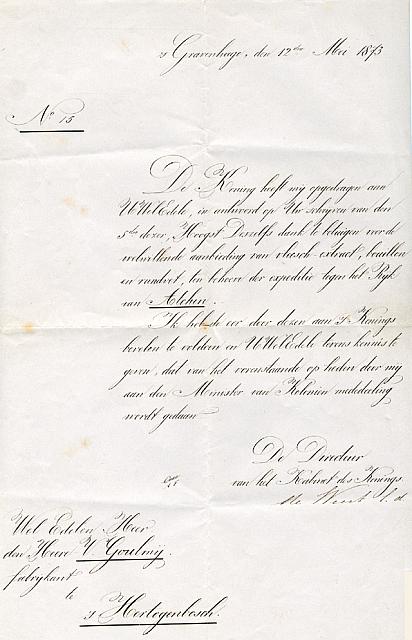 's Gravenhage, den 12den Mei 1873
No. 15
De Koning heeft mij opgedragen aan
UWelEdele, in antwoord op Uw schrijven van den
5den dezer, Hoogst Deszelfs dank te betuigen voor de
welwillende aanbieding van vleesch-extract, bouillon
en rundvet, ten behoeve der expeditie tegen het Ryk
van Atchin.
Ik heb de eer door dezen aan 's Konings
bevelen te voldoen en UWelEdele tevens kennis te
geven, dat van het vorenstaande op heden door mij
aan den Minister van Kolonien mededeeling
wordt gedaan
De Directeur
van het Kabinet des Konings
Wel Edelen Heer
den Heere V Goulmij.
fabrykant
te
's Hertogenbosch.